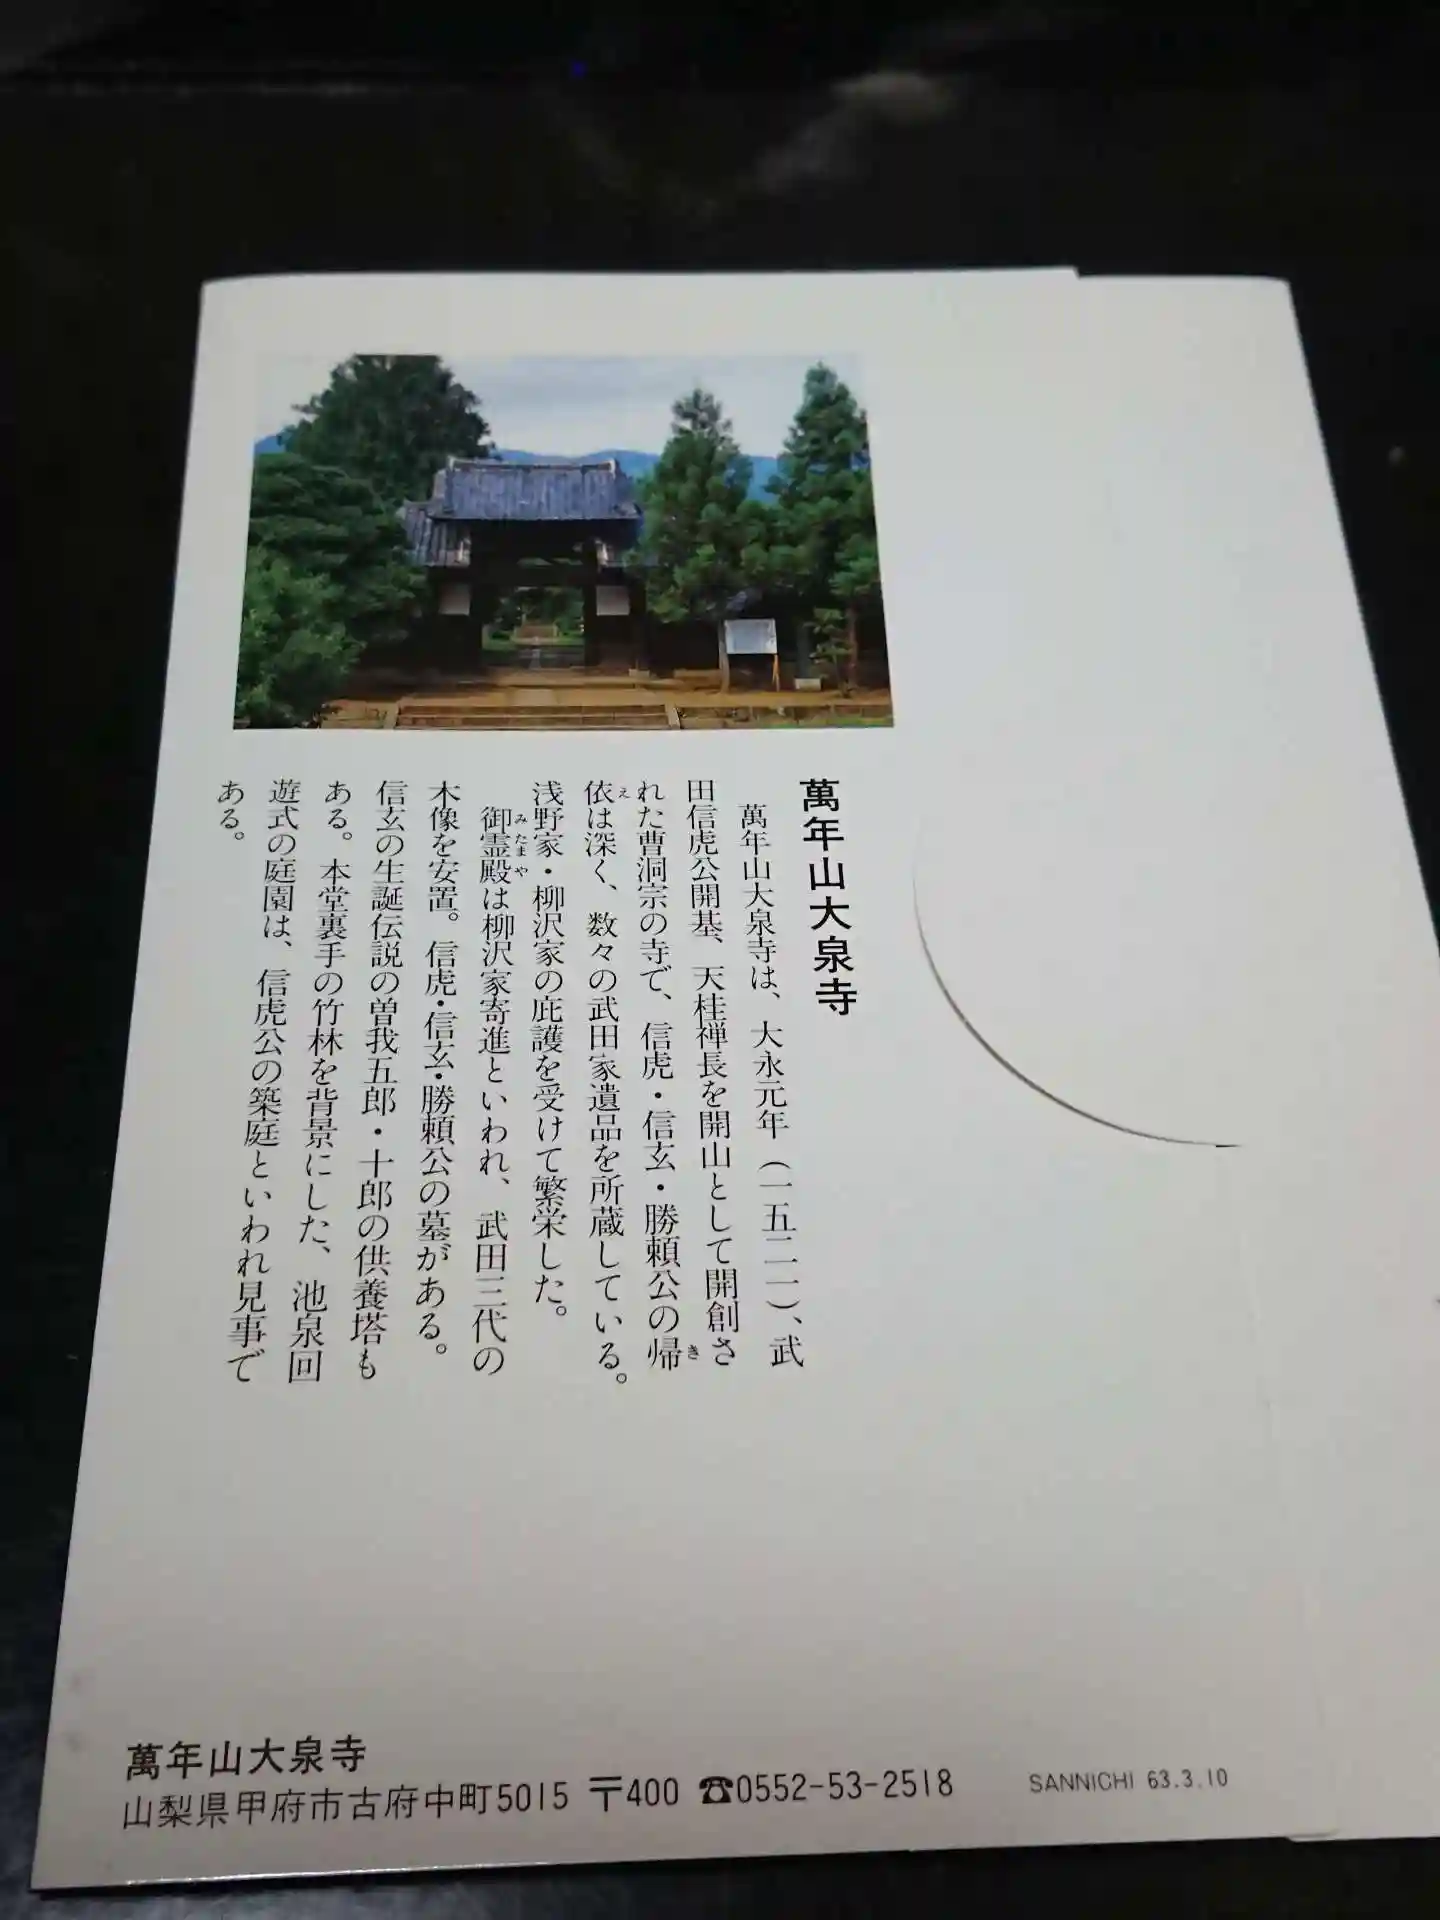 萬年山大泉寺
萬年山大泉寺は、大永元年(一五二一)、武
田信虎公開基、天桂禅長を開山として開創さ
れた曹洞宗の寺で、信虎・信玄・勝頼公の帰
き
依は深く、数々の武田家遺品を所蔵している。
え
浅野家・柳沢家の庇護を受けて繁栄した。
御霊殿は柳沢家寄進といわれ、武田三代の
みたまや
木像を安置。信虎・信玄・勝頼公の墓がある。
信玄の生誕伝説の曽我五郎・十郎の供養塔も
ある。本堂裏手の竹林を背景にした、池泉回
遊式の庭園は、信虎公の築庭といわれ見事で
ある。
萬年山大泉寺
山梨県甲府市古府中町5015 〒400 ☎0552-53-2518
SANNICHI 63.3.10